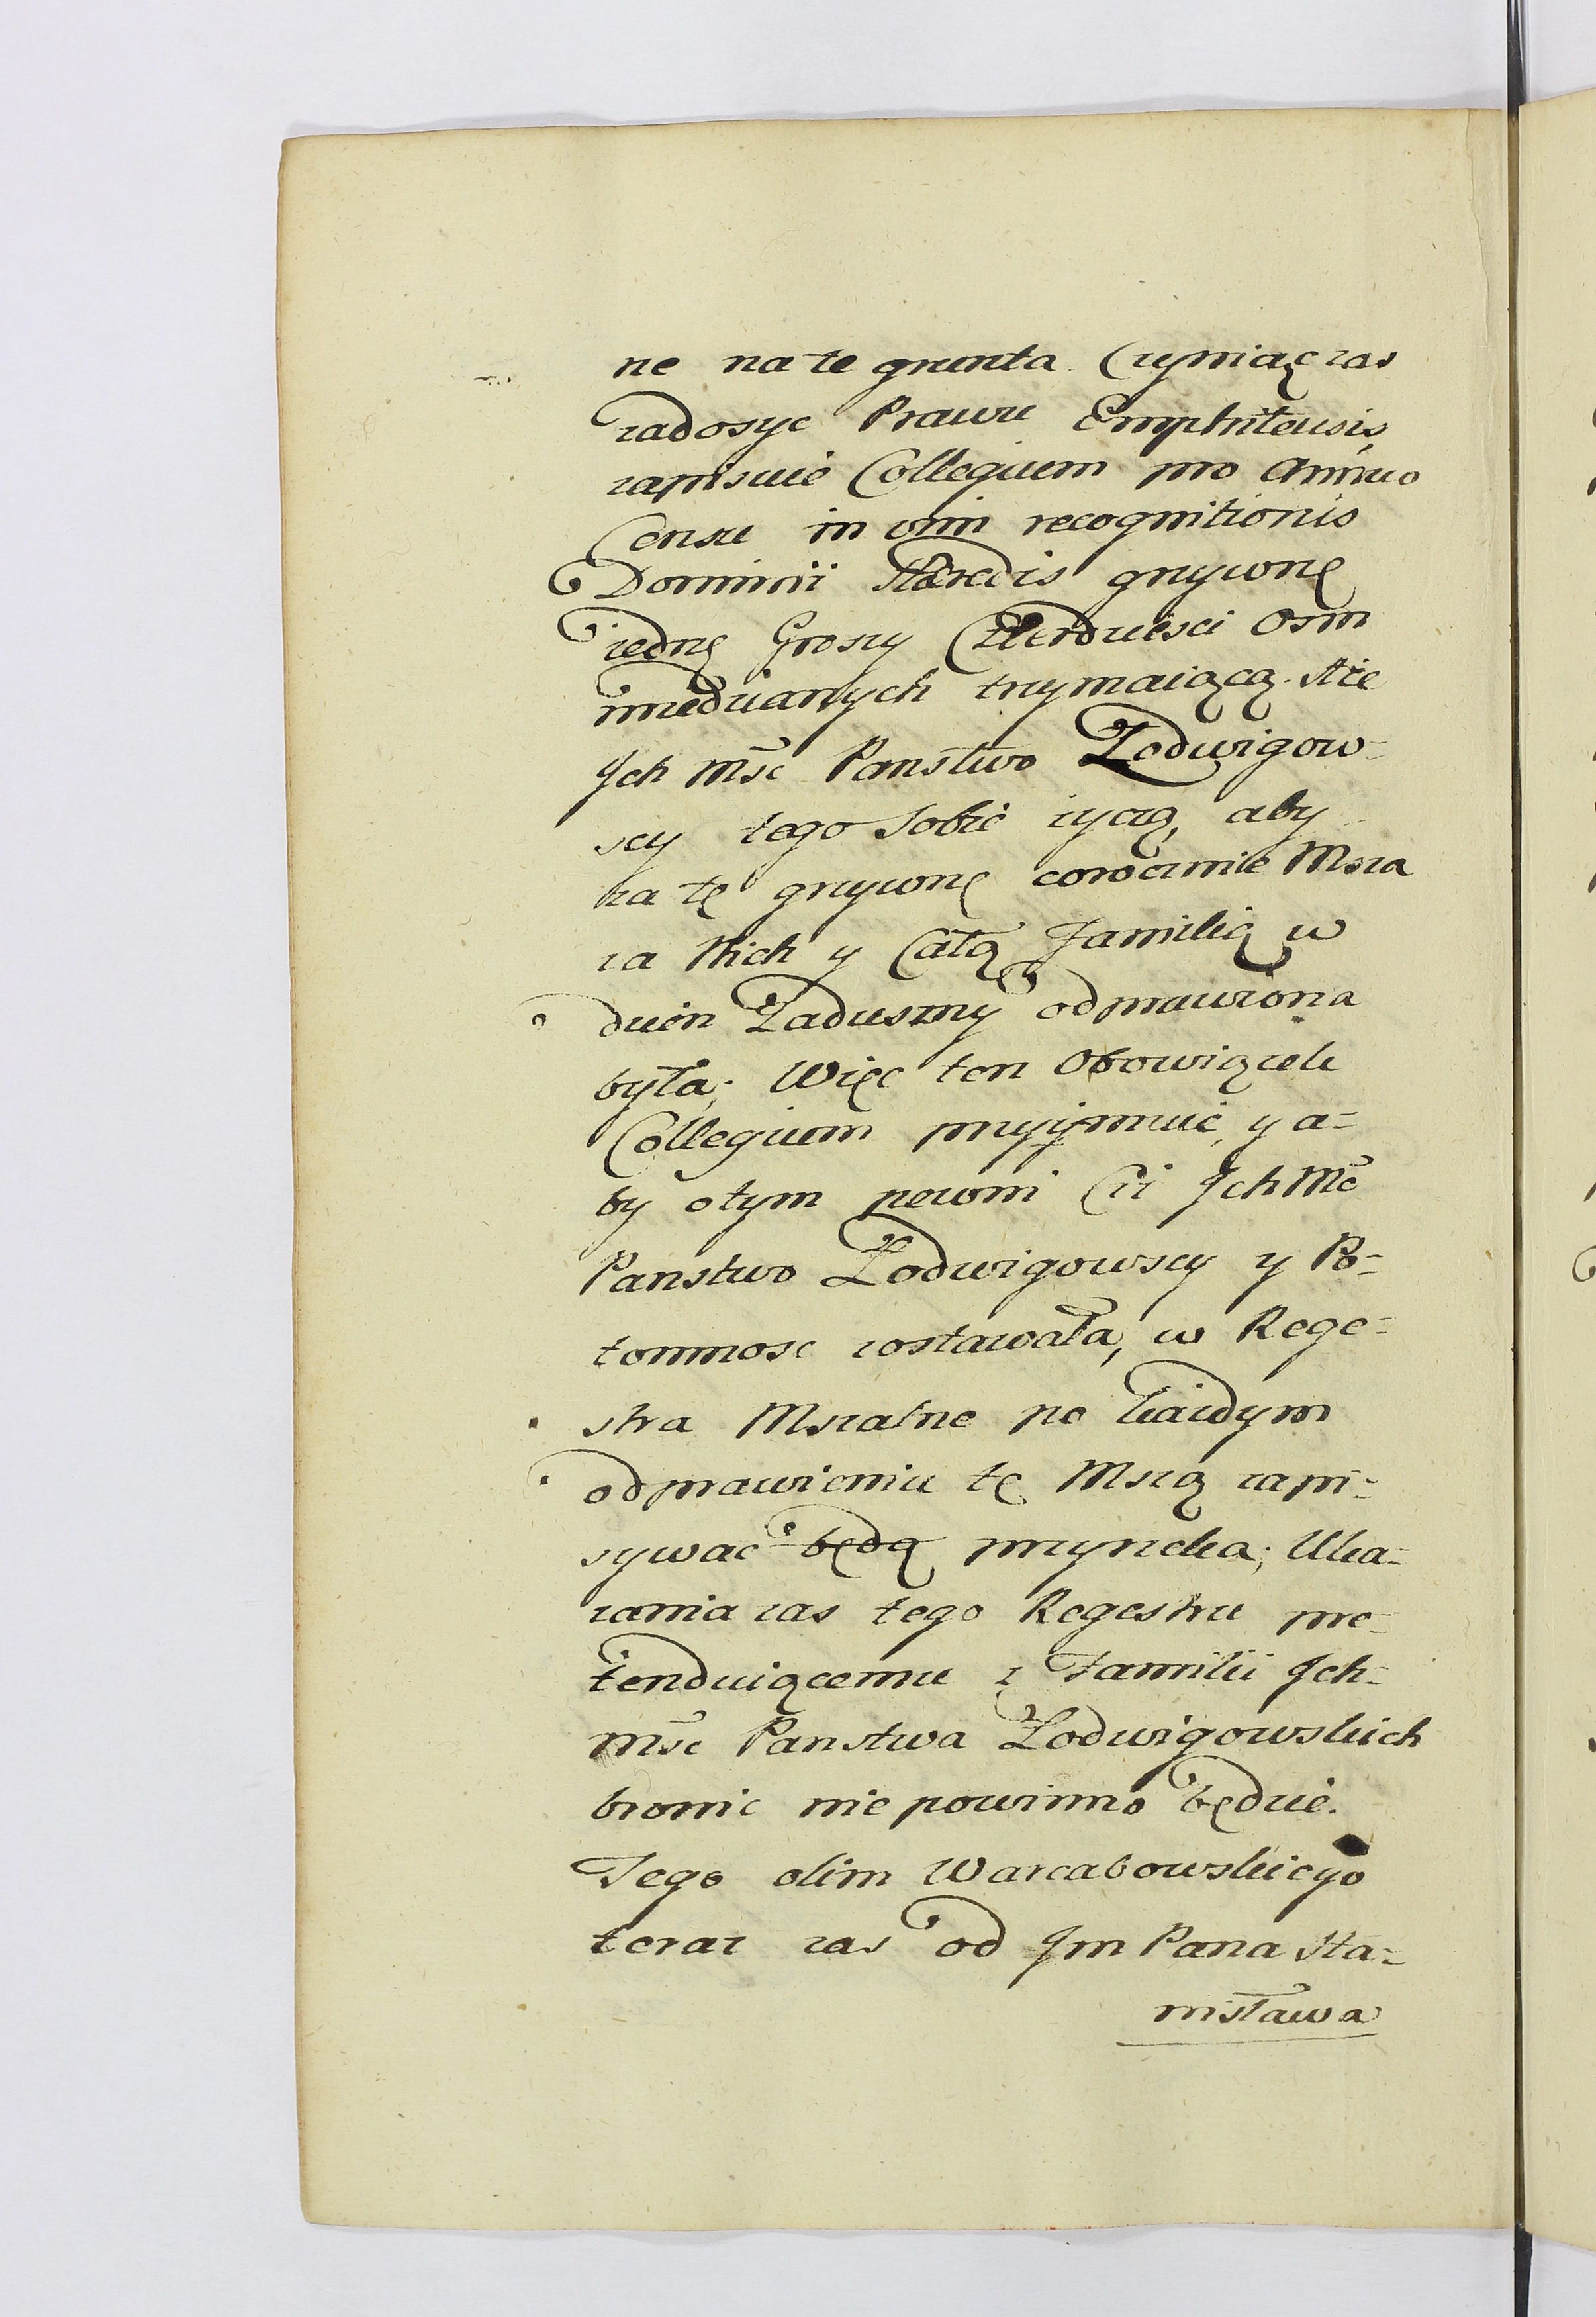 ne na te grunta. Czyniąc zas
zadosyc Prawu Emphiteusis,
zapisuie Collegium pro Annuo
Censu in vim recognitionis
Dominii Hæredis grzywnę
iednę Groszy Czterdziesci Osm
miedzianych trzymaiącą. Ale
Ich Msc Panstwo Zodwigow-
scy tego Sobie zyczą, aby
za tę grzywnę corocznie Msza
za Nich y Całą Familią w
dzien Zaduszny odprawiona
była; Więc ten Obowiązek
Collegium przyijmuie, y a=
by otym pewni Ciż Ich Mc
Panstwo Zodwigowscy y Po=
tomnosc zostawała, w Rege=
stra Mszalne po każdym
odprawieniu tę Mszą zapi=
sywac będą przyrzeka; Uka=
zania zas tego Regestru pre=
tenduiącemu z Familii Ich=
msc Panstwa Zodwigowskich
bronic nie powinno będzie.
Tego olim Warcabowskiego
teraz zas od Jm Pana Sta=
nisława